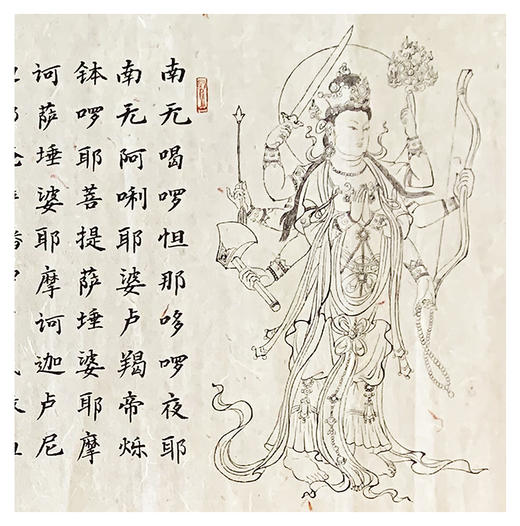 南无喝啰怛那哆啰夜耶
南无阿唎耶婆卢羯帝烁
钵啰耶菩提萨埵婆耶摩
诃萨埵婆耶摩诃迦卢尼